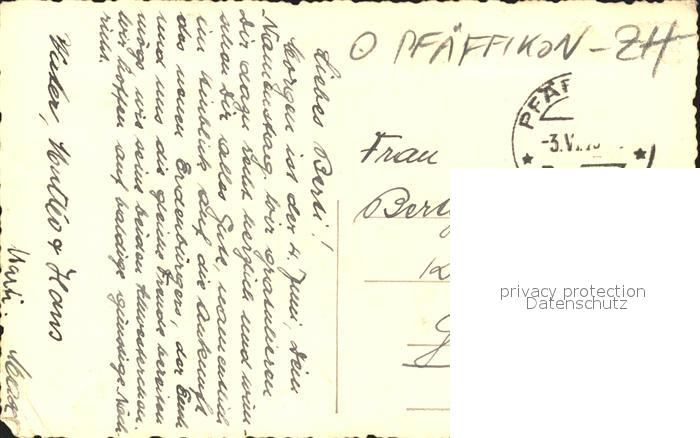 O PFÄFFIKON - ZH
PFÄF
-3.V
Frau
Bert
privacy protection
Datenschutz
Liebes Berti!
Morgen ist der 4. Juni, Dein
Namenstag. Wir gratulieren
Dir dazu recht herzlich und wün-
schen Dir alles Gute, namentlich
im Hinblick auf die Ankunft
des neuen Erdenbürgers, der Euch
und uns die gleiche Freude bereiten
möge wie seine beiden
Wir hoffen auf baldige günstige Nach-
richt.
Vater, Mutter & Hans